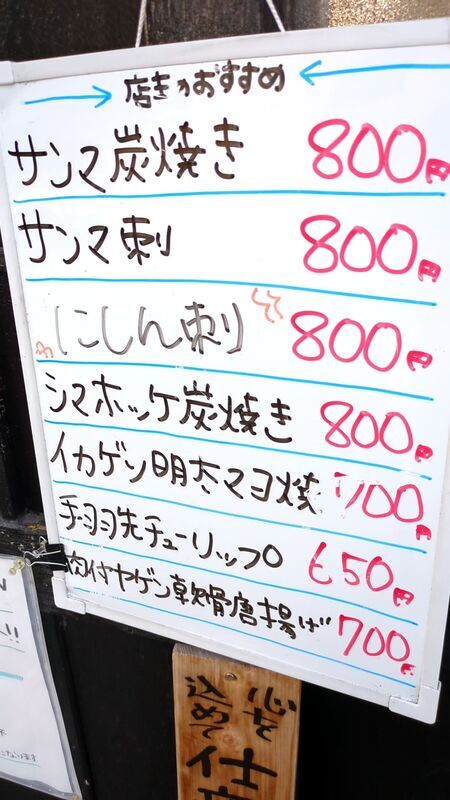 店主のおすすめ
サンマ炭焼き 800円
サンマ刺 800円
にしん刺 800円
シマホッケ炭焼き 800円
イカゲソ明太マヨ焼 700円
手羽先チューリップ 650円
肉付ヤゲン軟骨唐揚げ 700円
心を
込めて
仕